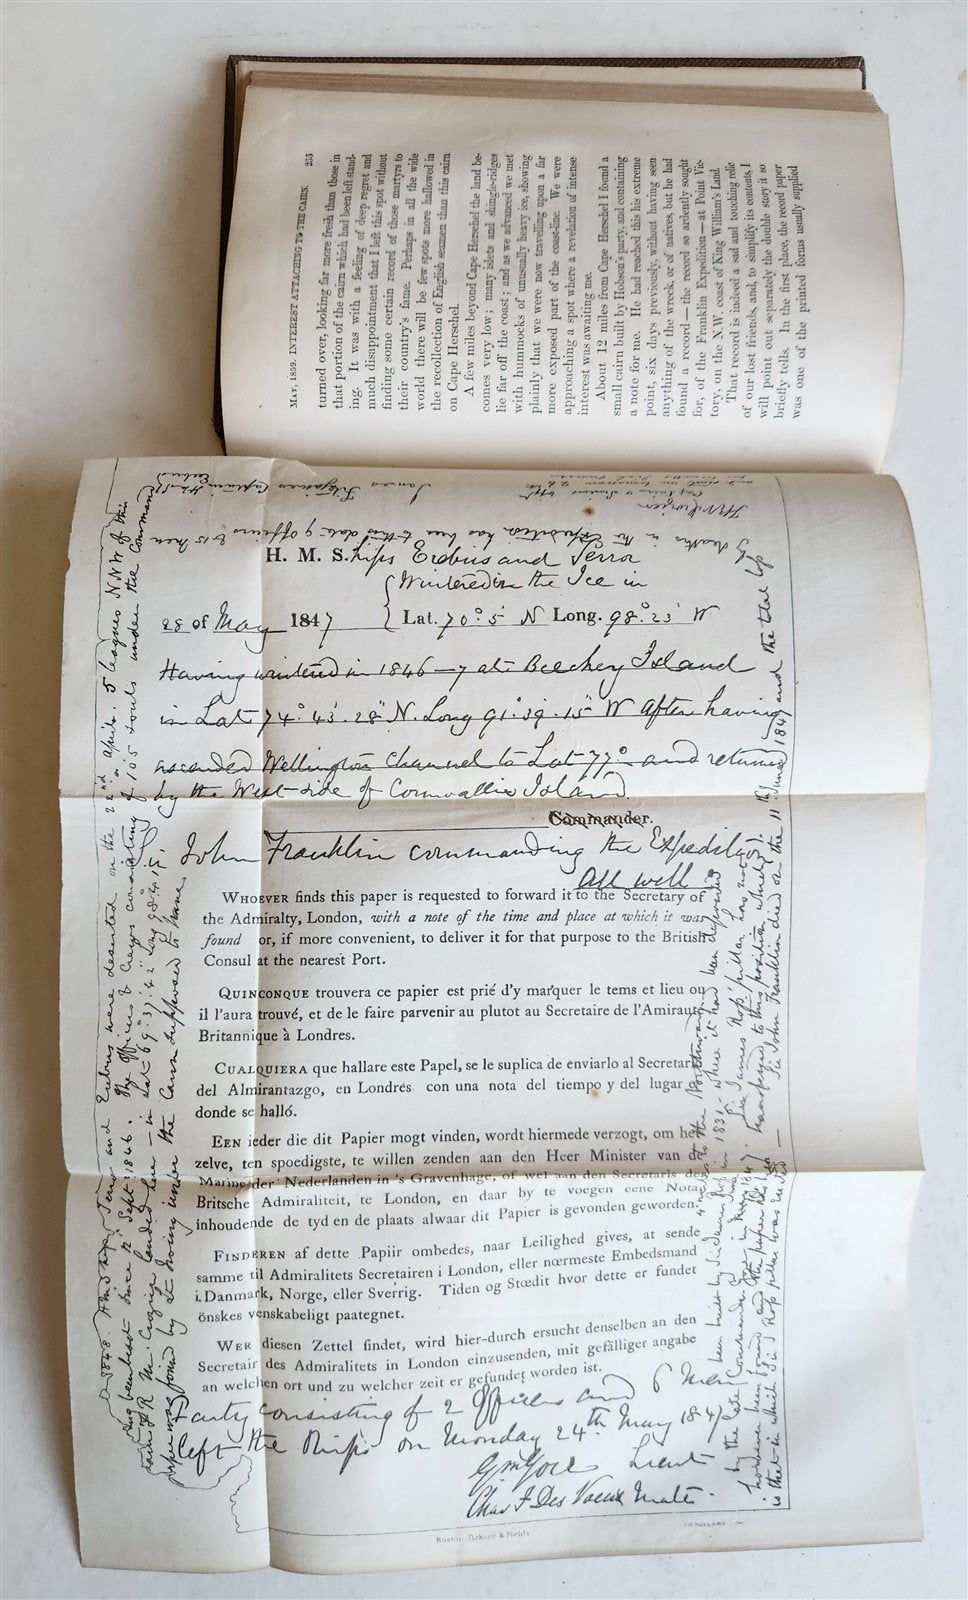 MAY, 1859. INTEREST ATTACHING TO THE CAIRN. 255
turned over, looking far more fresh than those in
that portion of the cairn which had been left stand-
ing. It was with a feeling of deep regret and
much disappointment that I left this spot without
finding some certain record of those martyrs to
their country's fame. Perhaps in all the wide
world there will be few spots more hallowed in
the recollection of English seamen than this cairn
on Cape Herschel.
A few miles beyond Cape Herschel the land be-
comes very low; many islets and shingle-ridges
lie far off the coast; and as we advanced we met
with hummocks of unusually heavy ice, showing
plainly that we were now travelling upon a far
more exposed part of the coast-line. We were
approaching a spot where a revelation of intense
interest was awaiting me.
About 12 miles from Cape Herschel I found a
small cairn built by Hobson's party, and containing
a note for me. He had reached this his extreme
point, six days previously, without having seen
anything of the wreck, or of natives, but he had
found a record—the record so ardently sought
for, of the Franklin Expedition—at Point Vic-
tory, on the N.W. coast of King William's Land.
That record is indeed a sad and touching relic
of our lost friends, and, to simplify its contents, I
will point out separately the double story it so
briefly tells. In the first place, the record paper
was one of the printed forms usually supplied
H. M. Ships Erebus and Terror
Wintered in the Ice in
28 of May 1847 Lat. 70° 5' N Long. 98° 23' W
Having wintered in 1846–7 at Beechey Island
in Lat 74° 43' 28" N. Long 91° 39' 15" W After having
ascended Wellington Channel to Lat 77° and returned
by the West side of Cornwallis Island.
Commander.
John Franklin commanding the Expedition
All well
WHOEVER finds this paper is requested to forward it to the Secretary of
the Admiralty, London, with a note of the time and place at which it was
found or, if more convenient, to deliver it for that purpose to the British
Consul at the nearest Port.
QUINCONQUE trouvera ce papier est prié d'y marquer le tems et lieu ou
il l'aura trouvé, et de le faire parvenir au plutot au Secretaire de l'Amirauté
Britannique à Londres.
CUALQUIERA que hallare este Papel, se le suplica de enviarlo al Secretario
del Almirantazgo, en Londres con una nota del tiempo y del lugar
donde se halló.
EEN ieder die dit Papier mogt vinden, wordt hiermede verzogt, om het
zelve, ten spoedigste, te willen zenden aan den Heer Minister van de
Marine der Nederlanden in 's Gravenhage, of wel aan den Secretaris der
Britsche Admiraliteit, te London, en daar by te voegen eene Nota
inhoudende de tyd en de plaats alwaar dit Papier is gevonden geworden.
FINDEREN af dette Papiir ombedes, naar Leilighed gives, at sende
samme til Admiralitets Secretairen i London, eller nœrmeste Embedsmand
i Danmark, Norge, eller Sverrig. Tiden og Stœdit hvor dette er fundet
önskes venskabeligt paategnet.
WER diesen Zettel findet, wird hier-durch ersucht denselben an den
Secretair des Admiralitets in London einzusenden, mit gefälliger angabe
an welchen ort und zu welcher zeit er gefundet worden ist.
Party consisting of 2 Officers and 6 Men
left the Ships on Monday 24th May 1847
Gm Gore Lieut
Chas F Des Voeux Mate.
1848. HM Ships Terror and Erebus were deserted on the 22nd April. 5 leagues NNW of this
having been beset since 12th Sept 1846. The Officers & Crews consisting of 105 souls under the Command
tain F R M Crozier landed here—in Lat 69° 37' 42" Long 98° 41'
paper was found by Lt Irving under the Cairn supposed to have
been built by Sir James Ross in 1831—where it had been deposited
4 miles to the Northward
by the late Commander Gore in May 1847. Sir James Ross' pillar has not
however been found and the paper has been transferred to this position which
is that in which Sir J Ross pillar was erected—Sir John Franklin died on the 11th June 1847 and the total loss
by deaths in the Expedition has been to this date 9 officers & 15 men
James Fitzjames Captain HMS Erebus
F R M Crozier
Captain & Senior Offr
Boston, Ticknor & Fields